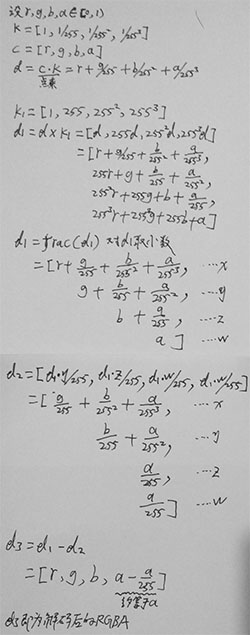 设 r,g,b,a∈[0,1)
K=[1, 1/255, 1/255², 1/255³]
C=[r,g,b,a]
d = C·K = r + g/255 + b/255² + a/255³
点乘
K₁=[1, 255, 255², 255³]
d₁=d×K₁=[d, 255d, 255²d, 255³d]
=[r+g/255+b/255²+a/255³,
255r+g+b/255+a/255²,
255²r+255g+b+a/255,
255³r+255²g+255b+a]
d₁=frac(d₁) 对d₁取小数
=[r+g/255+b/255²+a/255³, ····x
g+b/255+a/255², ····y
b+a/255, ····z
a] ····w
d₂=[d₁·y/255, d₁·z/255, d₁·w/255, d₁·w/255]
=[g/255+b/255²+a/255³, ···x
b/255+a/255², ···y
a/255, ···z
a/255] ···w
d₃=d₁-d₂
=[r,g,b, a-a/255]
约等于a
d₃即为解码后的RGBA